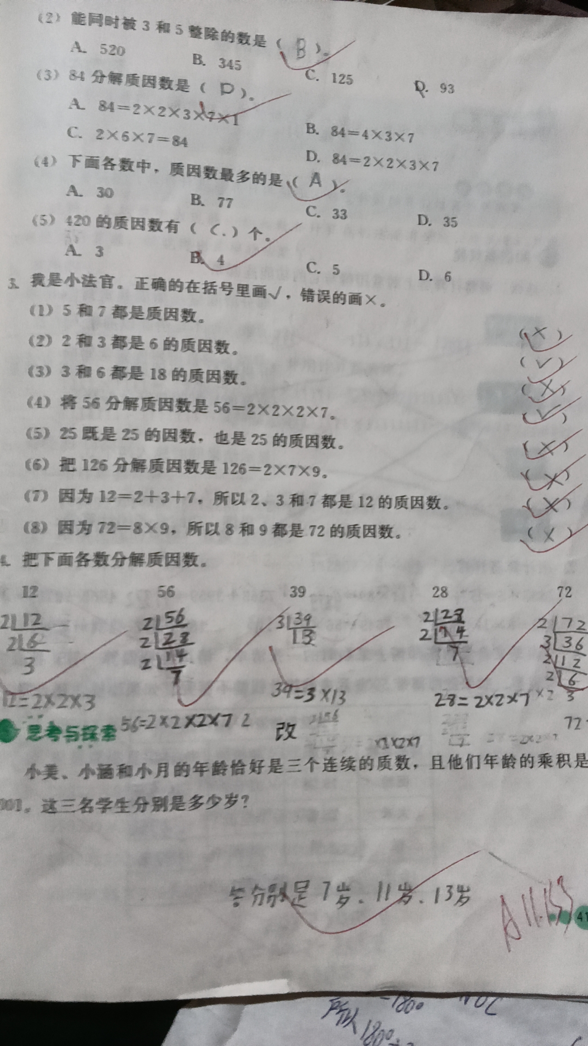 (2) 能同时被 3 和 5 整除的数是 ( B )。
A. 520 B. 345 C. 125 D. 93
(3) 84 分解质因数是 ( D )。
A. 84=2×2×3×7×1 B. 84=4×3×7
C. 2×6×7=84 D. 84=2×2×3×7
(4) 下面各数中，质因数最多的是 ( A )。
A. 30 B. 77 C. 33 D. 35
(5) 420 的质因数有 ( C. ) 个。
A. 3 B. 4 C. 5 D. 6
3. 我是小法官。正确的在括号里画√，错误的画×。
(1) 5 和 7 都是质因数。 (×)
(2) 2 和 3 都是 6 的质因数。 (√)
(3) 3 和 6 都是 18 的质因数。 (×)
(4) 将 56 分解质因数是 56=2×2×2×7。 (√)
(5) 25 既是 25 的因数，也是 25 的质因数。 (×)
(6) 把 126 分解质因数是 126=2×7×9。 (×)
(7) 因为 12=2+3+7，所以 2、3 和 7 都是 12 的质因数。 (×)
(8) 因为 72=8×9，所以 8 和 9 都是 72 的质因数。 (×)
4. 把下面各数分解质因数。
12 56 39 28 72
2 12 2 56 3 39 2 28 2 72
2 6 2 28 13 2 14 3 36
3 2 14 7 2 12
7 2 6
3
12=2×2×3 39=3×13 28=2×2×7
56=2×2×2×7
改
思考与探索
小美、小涵和小月的年龄恰好是三个连续的质数，且他们年龄的乘积是
1001。这三名学生分别是多少岁？
答分别是 7岁、11岁、13岁
A 11.15
41
180°
180°